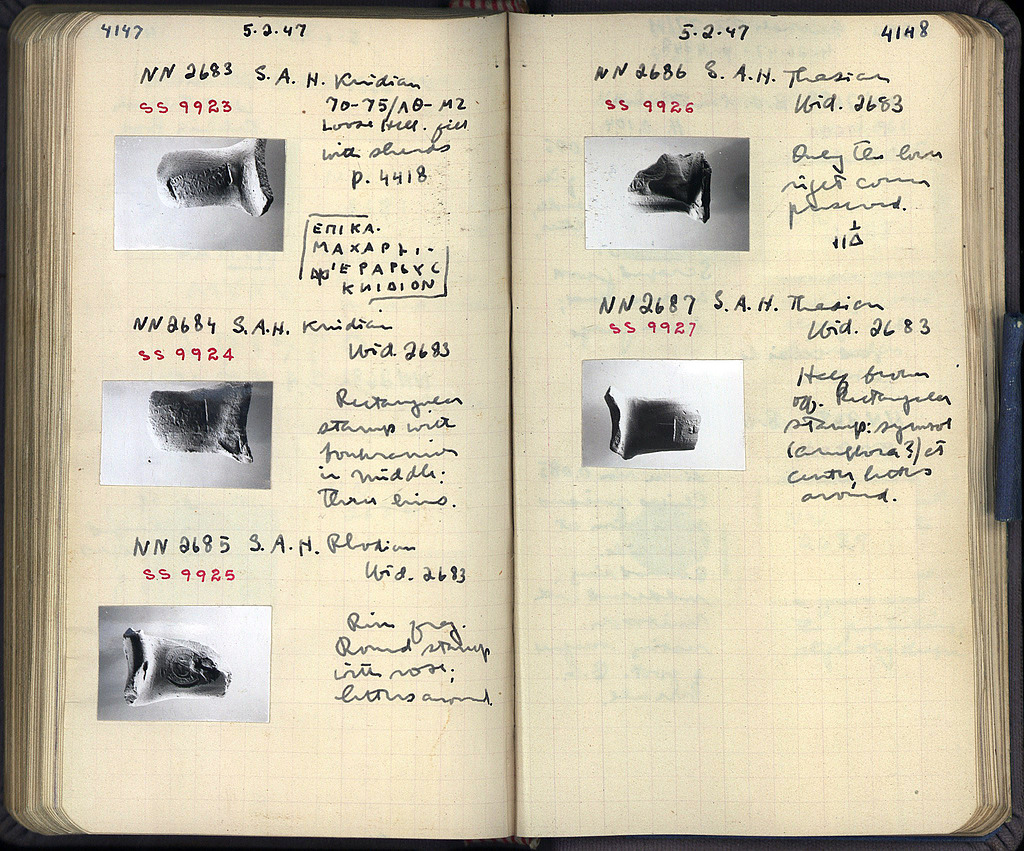 4147
5·2·47
NN 2683 S. A. H. Knidian
SS 9923
70-75/ΛΘ-ΜΖ
Loose Hell. fill
with sherds
p. 4418
ΕΠΙΚΑ.
ΜΑΧΑΡΗΙ.
ΕΡΑΡ
ΚΝΙΔΙΟΝ
NN 2684 S.A.H. Knidian
SS 9924
Ibid. 2683
Rectangular
stamp with
in middle;
Three lines.
NN 2685 S.A.H. Rhodian
SS 9925
Ibid. 2683
Rim frag.
Round stamp
with rose;
letters around.
5·2·47
4148
NN 2686 S. A.H. Thasian
SS 9926
Ibid. 2683
Only the lower
right corner
preserved.
NN 2687 S.A.H. Thasian
SS 9927
Ibid. 2683
Rectangular
stamp: symbol
(amphora?) at
center, letters
around.